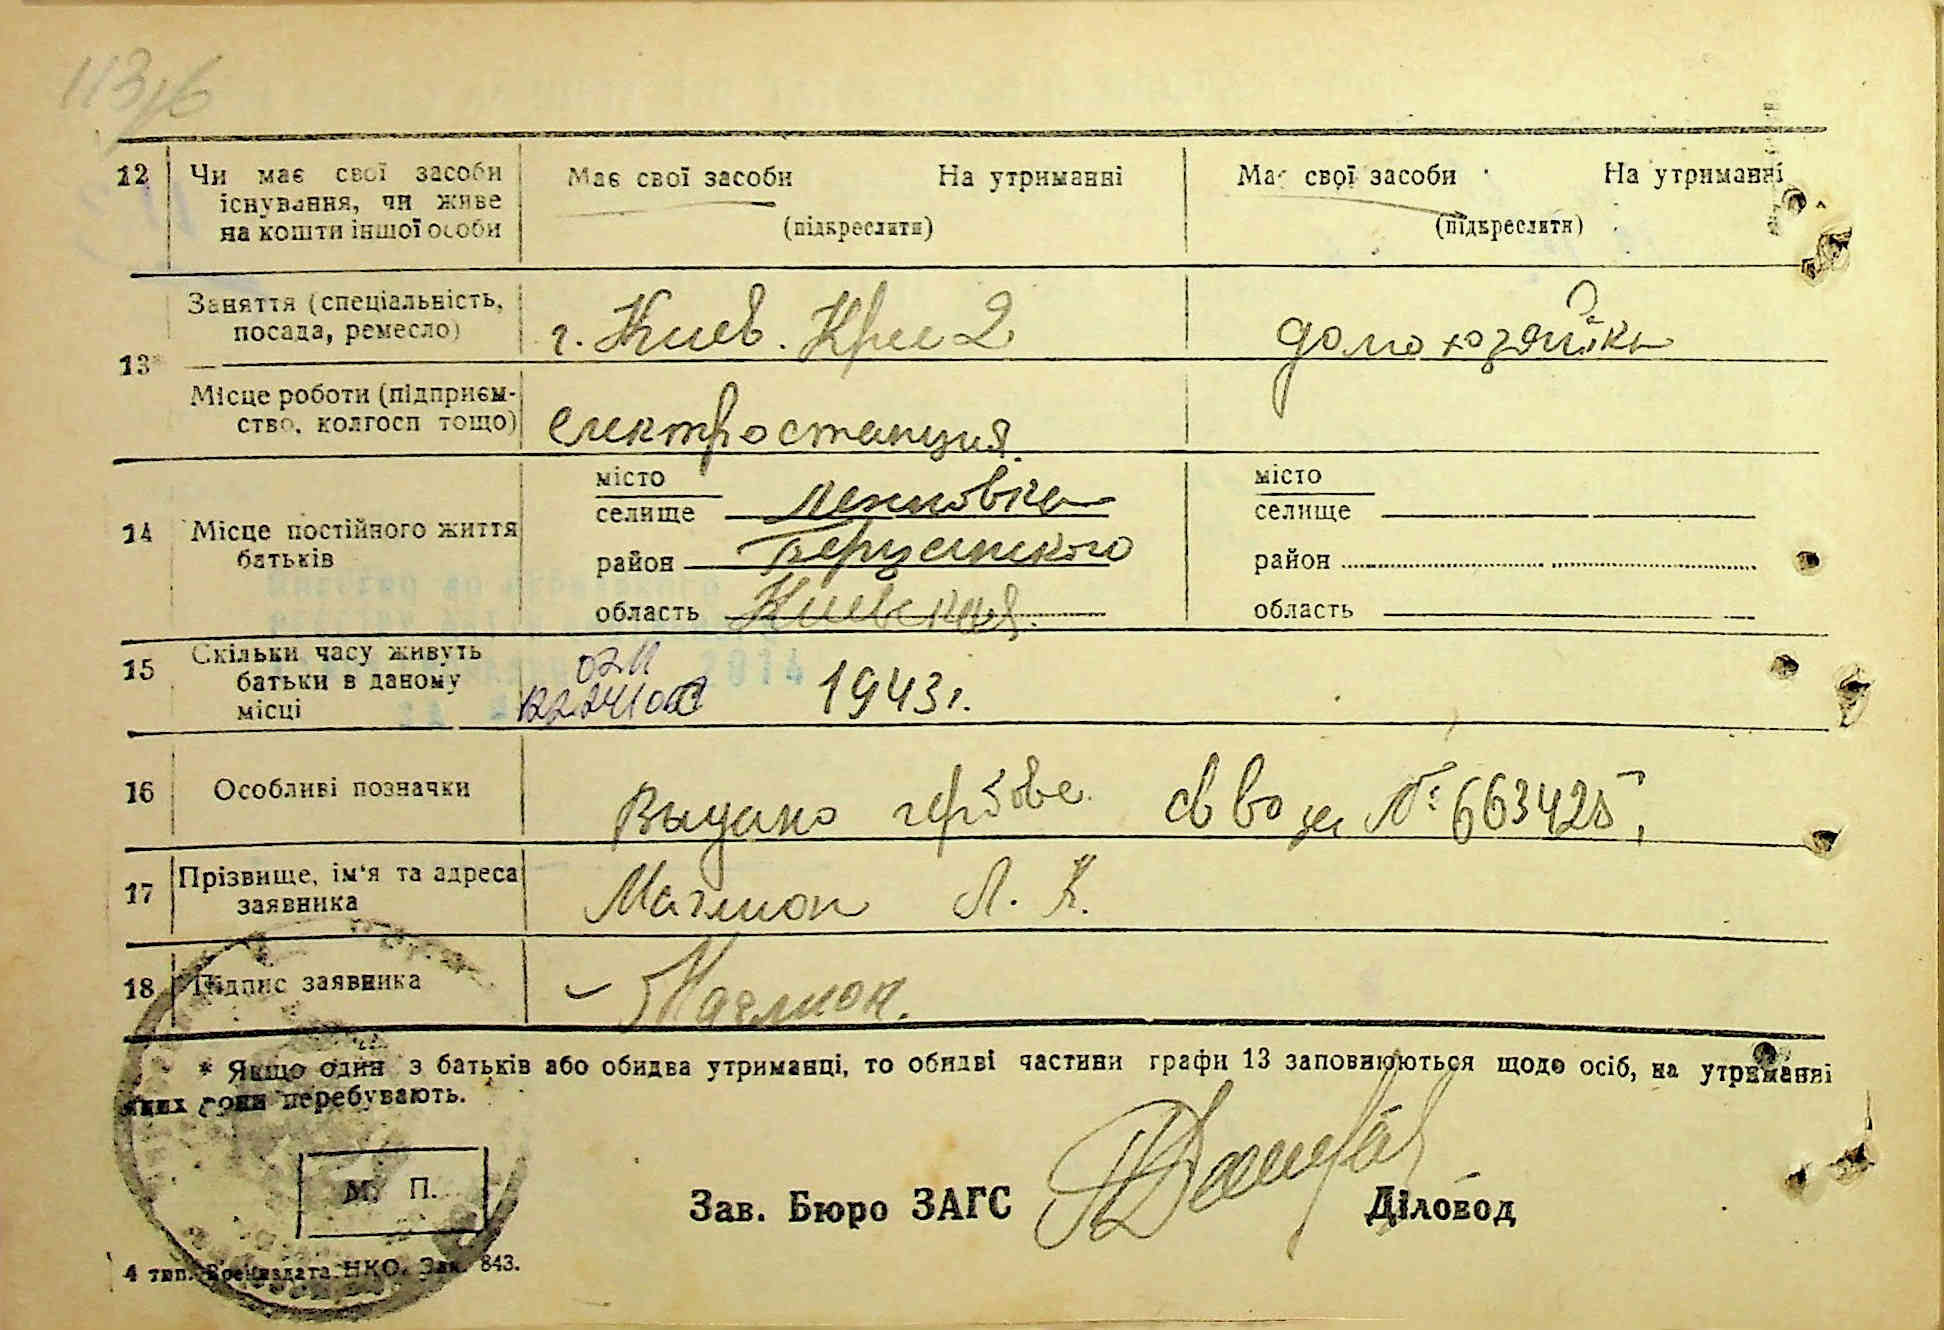 12 Чи має свої засоби існування, чи живе на кошти іншої особи
Має свої засоби На утриманні
(підкреслити)
Має свої засоби На утриманні
(підкреслити)
13* Заняття (спеціальність, посада, ремесло)
г. Киев. 2
домохозяйка
Місце роботи (підприємство, колгосп тощо)
електростанция
14 Місце постійного життя батьків
місто
селище
район
область Киевская
місто
селище
район
область
15 Скільки часу живуть батьки в даному місці
1943 г.
16 Особливі позначки
Выдано гербове св во за № 663425
17 Прізвище, ім'я та адреса заявника
Магмон Л. К.
18 Підпис заявника
Магмон.
* Якщо один з батьків або обидва утриманці, то обидві частини графи 13 заповнюються щодо осіб, на утриманні
яких вони перебувають.
М. П.
Зав. Бюро ЗАГС
Діловод
4 тип. Воениздата НКО. Зак. 843.